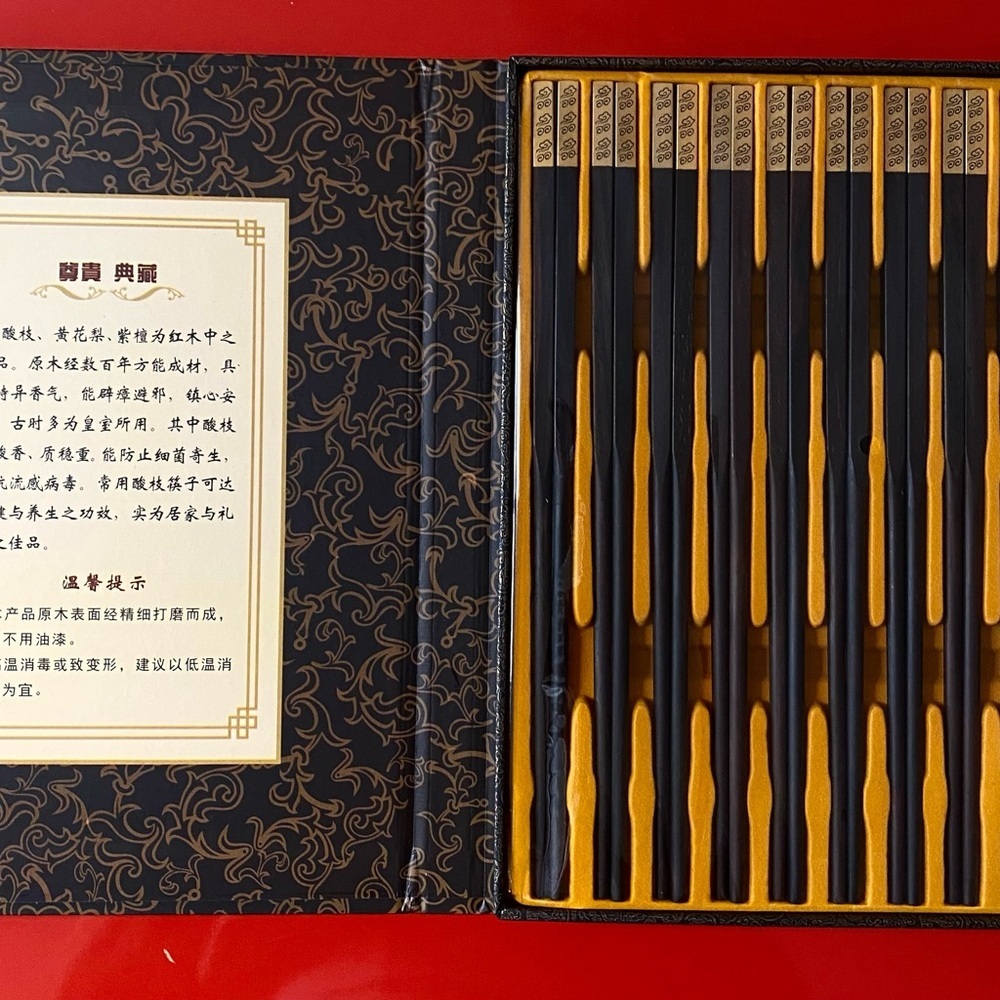 尊貴 典藏
酸枝、黄花梨、紫檀为红木中之
品。原木经数百年方能成材，具
特异香气，能辟瘴避邪，镇心安
古时多为皇室所用。其中酸枝
酸香、质稳重。能防止细菌寄生，
抗流感病毒。常用酸枝筷子可达
健与养生之功效，实为居家与礼
之佳品。
温馨提示
本产品原木表面经精细打磨而成，
不用油漆。
高温消毒或致变形，建议以低温消
为宜。